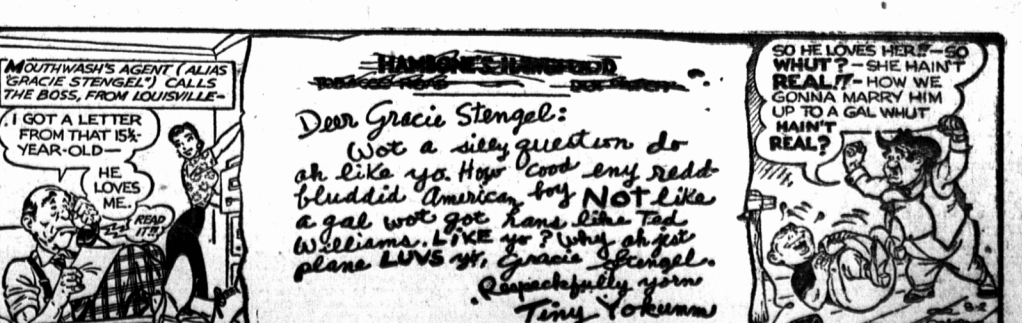 MOUTHWASH'S AGENT (ALIAS
"GRACIE STENGEL") CALLS
THE BOSS, FROM LOUISVILLE-
I GOT A LETTER
FROM THAT 15½-
YEAR-OLD—
HE
LOVES
ME.
READ
IT!!
Deer Gracie Stengel:
Wot a silly question do
ah like yo. How cood eny redd-
bluddid American boy NOT like
a gal wot got hans like Ted
Williams. LIKE yo? Why ah jest
plane LUVS yo, Gracie Stengel.
Respeckfully yorn
Tiny Yokumm
SO HE LOVES HER!!-SO
WHUT?-SHE HAIN'T
REAL!!-HOW WE
GONNA MARRY HIM
UP TO A GAL WHUT
HAIN'T
REAL?
8-2